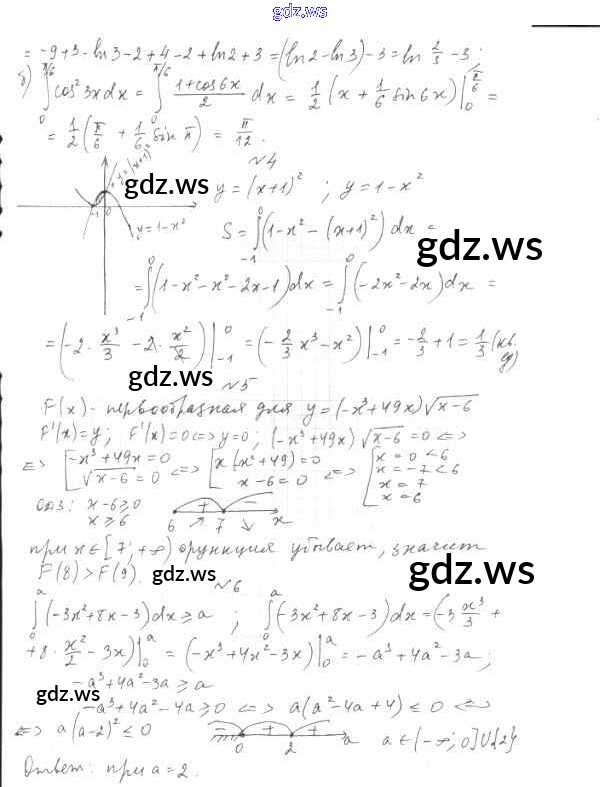 gdz.ws
= -9+3-ln3-2+4-2+ln2+3=(ln2-ln3)-3=ln 2/3 -3.
б) ∫₀^{π/6} cos²3xdx = ∫₀^{π/6} (1+cos6x)/2 dx = 1/2 (x + 1/6 sin6x)|₀^{π/6} =
= 1/2 (π/6 + 1/6 sin π) = π/12.
№4
y=(x+1)²
gdz.ws
y=(x+1)² ; y=1-x²
-1 0
y=1-x²
S = ∫₋₁⁰ (1-x²-(x+1)²)dx =
gdz.ws
= ∫₋₁⁰ (1-x²-x²-2x-1)dx = ∫₋₁⁰ (-2x²-2x)dx =
= (-2·x³/3 - 2·x²/2)|₋₁⁰ = (-2/3 x³-x²)|₋₁⁰ = -2/3+1 = 1/3 (кв. ед)
gdz.ws
№5
F(x) - первообразная для y=(-x³+49x)√x-6
F'(x)=y; F'(x)=0<=>y=0; (-x³+49x)√x-6=0 <=>
<=> [-x³+49x=0 √x-6=0 <=> [x(x²+49)=0 x-6=0 <=> [x=0<6 x=-7<6 x=7 x=6
ОДЗ: x-6≥0
x≥6
+ -
6 ↗ 7 ↘ x
при x∈[7;+∞) функция убывает, значит
F(8)>F(9).
gdz.ws
№6
∫₀^a (-3x²+8x-3)dx≥a ; ∫₀^a (-3x²+8x-3)dx=(-3x³/3+
+8·x²/2-3x)|₀^a = (-x³+4x²-3x)|₀^a = -a³+4a²-3a;
-a³+4a²-3a≥a
gdz.ws
-a³+4a²-4a≥0 <=> a(a²-4a+4)≤0 <=>
<=> a(a-2)²≤0
- + +
0 2 a
a∈(-∞;0]∪{2}
Ответ: при a=2.
gdz.ws